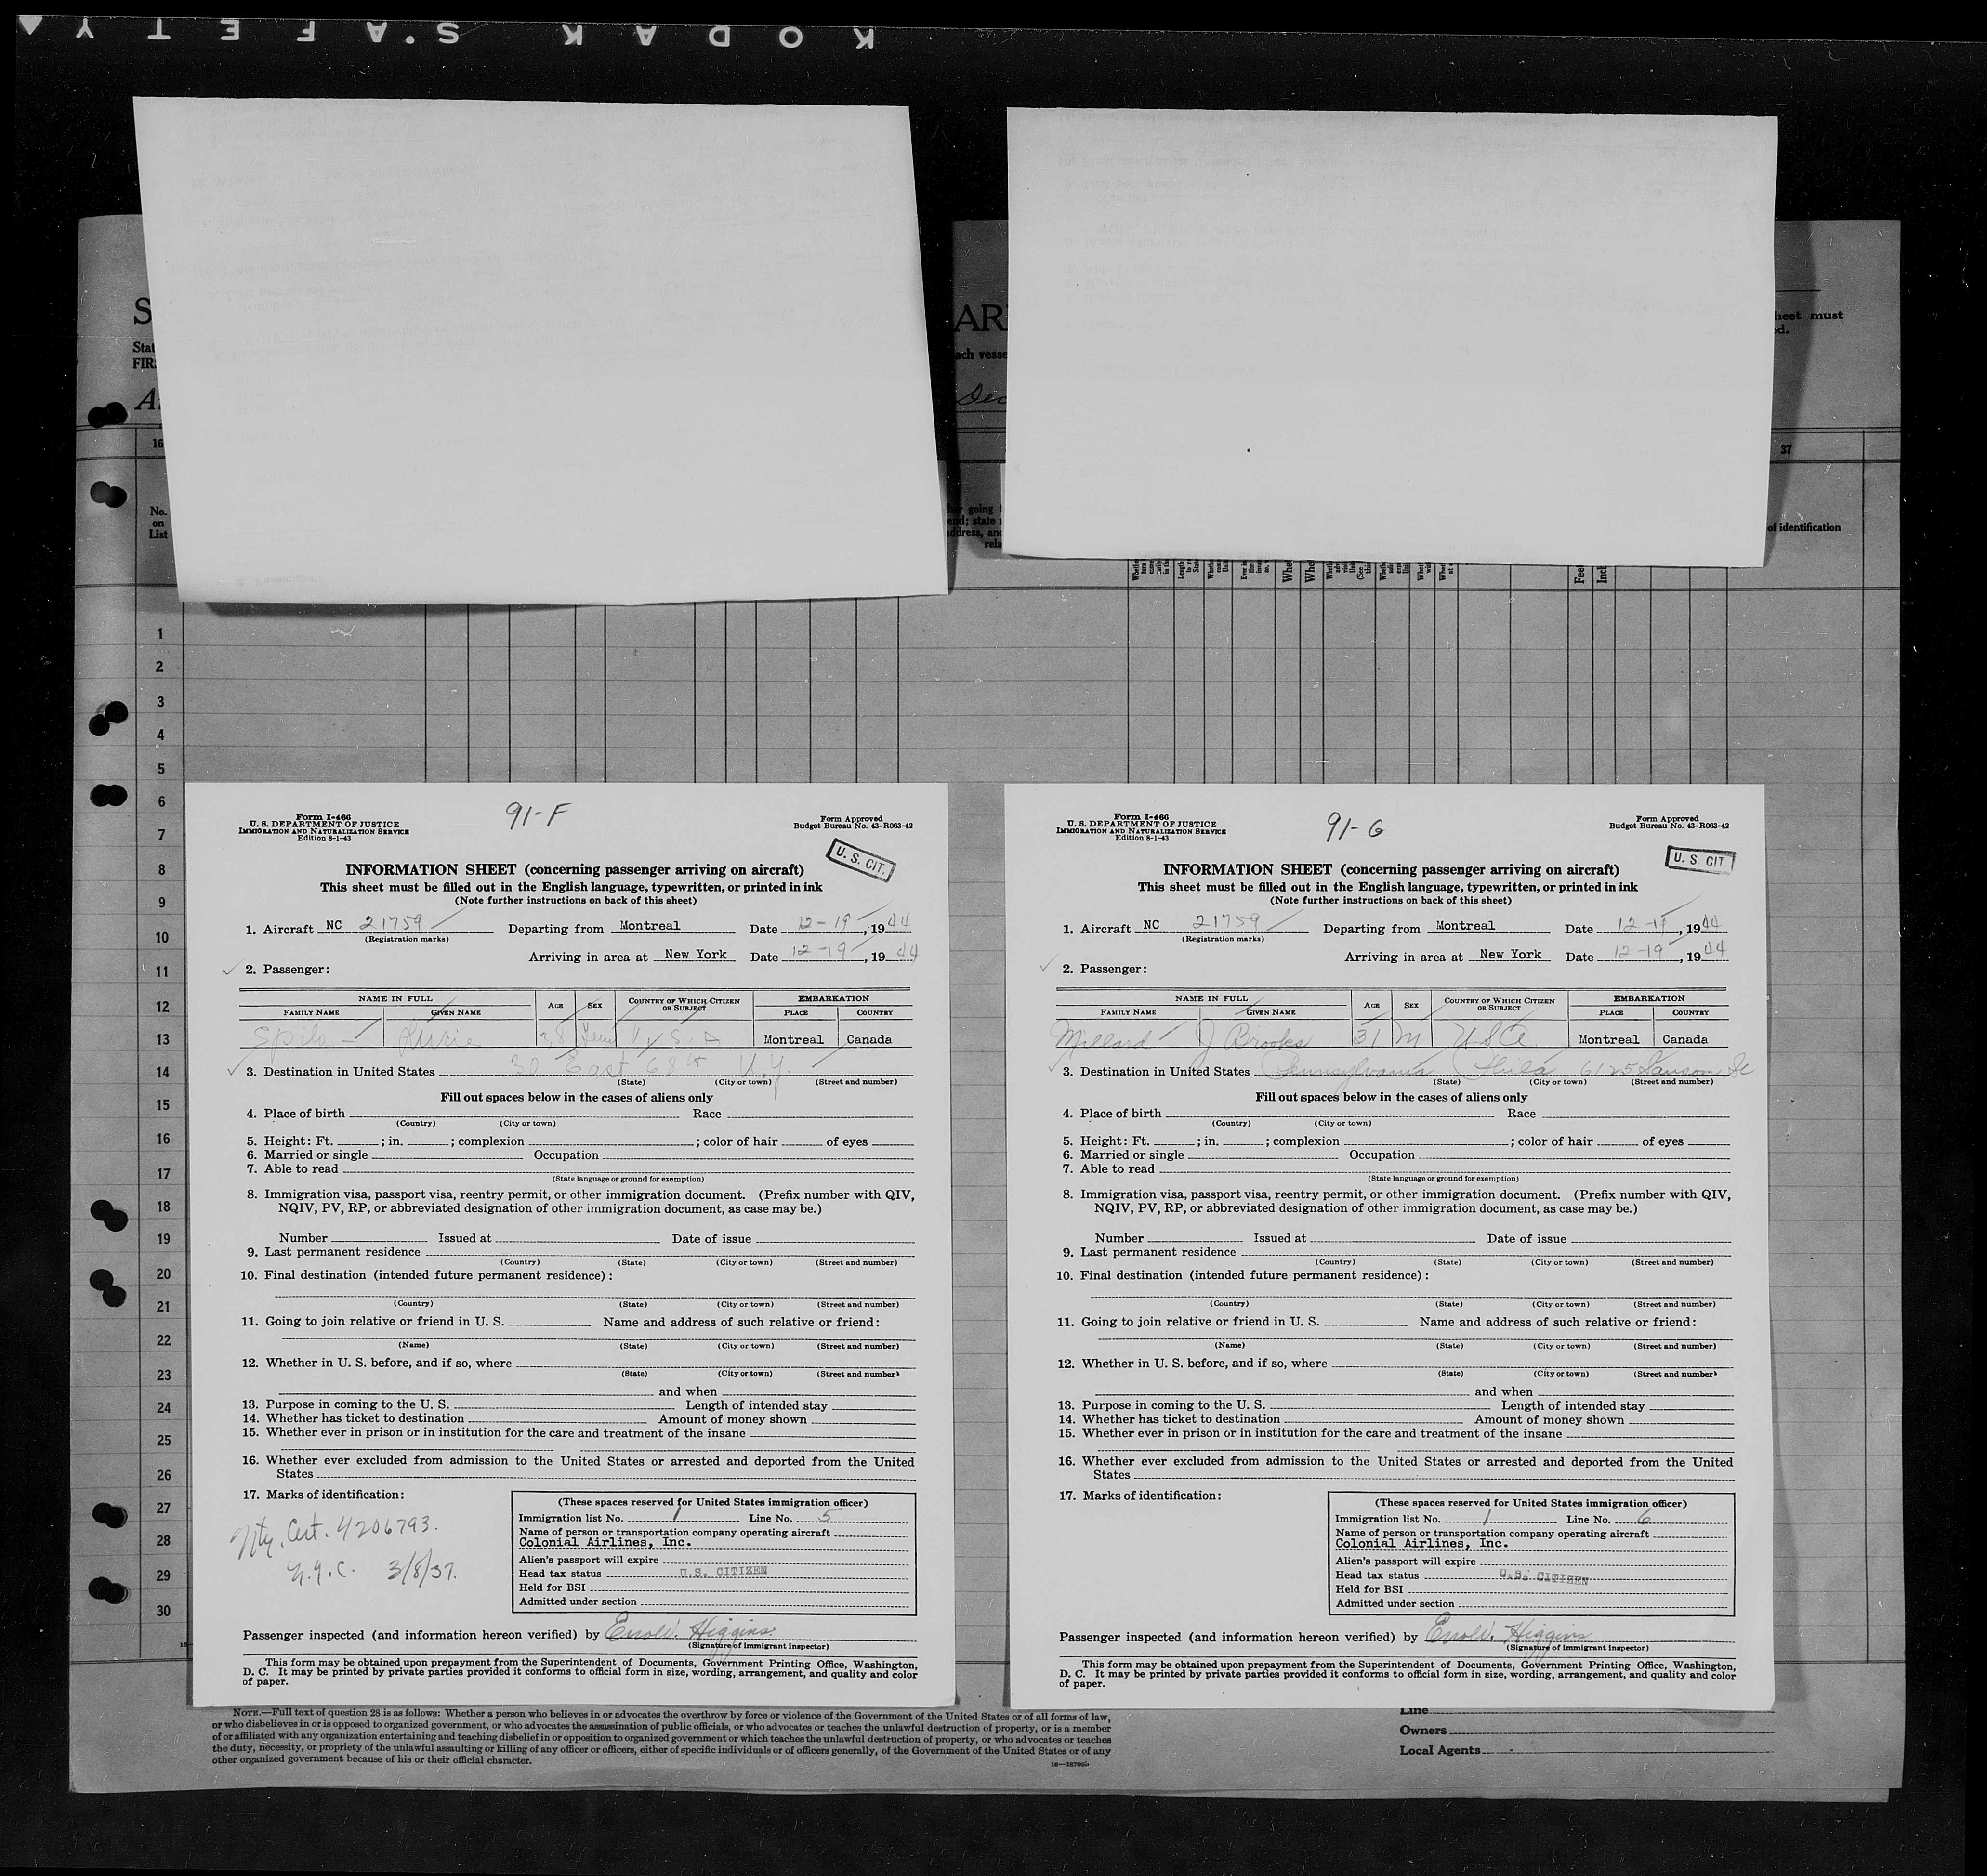 KODAK SAFETY
S
AR
heet must
ed.
Stat
ach vesse
FIR
Dec
16
37
No.
on
List
of identification
1
2
3
4
5
6
7
8
9
10
11
12
13
14
15
16
17
18
19
20
21
22
23
24
25
26
27
28
29
30
91-F
Form I-466
U. S. DEPARTMENT OF JUSTICE
IMMIGRATION AND NATURALIZATION SERVICE
Edition 8-1-43
Form Approved
Budget Bureau No. 43-R063-42
U. S. CIT.
INFORMATION SHEET (concerning passenger arriving on aircraft)
This sheet must be filled out in the English language, typewritten, or printed in ink
(Note further instructions on back of this sheet)
1. Aircraft NC 21759 Departing from Montreal Date 12-19, 1944
(Registration marks)
Arriving in area at New York Date 12-19, 1944
2. Passenger:
NAME IN FULL AGE SEX COUNTRY OF WHICH CITIZEN OR SUBJECT EMBARKATION
FAMILY NAME GIVEN NAME PLACE COUNTRY
Spilo 38 Fem U.S.A Montreal Canada
3. Destination in United States 30 East 68th N.Y.
(State) (City or town) (Street and number)
Fill out spaces below in the cases of aliens only
4. Place of birth Race
(Country) (City or town)
5. Height: Ft. ; in. ; complexion ; color of hair of eyes
6. Married or single Occupation
7. Able to read
(State language or ground for exemption)
8. Immigration visa, passport visa, reentry permit, or other immigration document. (Prefix number with QIV,
NQIV, PV, RP, or abbreviated designation of other immigration document, as case may be.)
Number Issued at Date of issue
9. Last permanent residence
(Country) (State) (City or town) (Street and number)
10. Final destination (intended future permanent residence):
(Country) (State) (City or town) (Street and number)
11. Going to join relative or friend in U. S. Name and address of such relative or friend:
(Name) (State) (City or town) (Street and number)
12. Whether in U. S. before, and if so, where
(State) (City or town) (Street and number)
and when
13. Purpose in coming to the U. S. Length of intended stay
14. Whether has ticket to destination Amount of money shown
15. Whether ever in prison or in institution for the care and treatment of the insane
16. Whether ever excluded from admission to the United States or arrested and deported from the United
States
17. Marks of identification:
Nty. Cert. 4206793.
N.Y.C. 3/8/37.
(These spaces reserved for United States immigration officer)
Immigration list No. 1 Line No. 5
Name of person or transportation company operating aircraft
Colonial Airlines, Inc.
Alien's passport will expire
Head tax status U.S. CITIZEN
Held for BSI
Admitted under section
Passenger inspected (and information hereon verified) by Errol W. Higgins
(Signature of immigrant inspector)
This form may be obtained upon prepayment from the Superintendent of Documents, Government Printing Office, Washington,
D. C. It may be printed by private parties provided it conforms to official form in size, wording, arrangement, and quality and color
of paper.
91-G
Form I-466
U. S. DEPARTMENT OF JUSTICE
IMMIGRATION AND NATURALIZATION SERVICE
Edition 8-1-43
Form Approved
Budget Bureau No. 43-R063-42
U. S. CIT
INFORMATION SHEET (concerning passenger arriving on aircraft)
This sheet must be filled out in the English language, typewritten, or printed in ink
(Note further instructions on back of this sheet)
1. Aircraft NC 21759 Departing from Montreal Date 12-19, 1944
(Registration marks)
Arriving in area at New York Date 12-19, 1944
2. Passenger:
NAME IN FULL AGE SEX COUNTRY OF WHICH CITIZEN OR SUBJECT EMBARKATION
FAMILY NAME GIVEN NAME PLACE COUNTRY
Millard J Brooks 31 M USA Montreal Canada
3. Destination in United States Pennsylvania Phila 6125 Sansom St
(State) (City or town) (Street and number)
Fill out spaces below in the cases of aliens only
4. Place of birth Race
(Country) (City or town)
5. Height: Ft. ; in. ; complexion ; color of hair of eyes
6. Married or single Occupation
7. Able to read
(State language or ground for exemption)
8. Immigration visa, passport visa, reentry permit, or other immigration document. (Prefix number with QIV,
NQIV, PV, RP, or abbreviated designation of other immigration document, as case may be.)
Number Issued at Date of issue
9. Last permanent residence
(Country) (State) (City or town) (Street and number)
10. Final destination (intended future permanent residence):
(Country) (State) (City or town) (Street and number)
11. Going to join relative or friend in U. S. Name and address of such relative or friend:
(Name) (State) (City or town) (Street and number)
12. Whether in U. S. before, and if so, where
(State) (City or town) (Street and number)
and when
13. Purpose in coming to the U. S. Length of intended stay
14. Whether has ticket to destination Amount of money shown
15. Whether ever in prison or in institution for the care and treatment of the insane
16. Whether ever excluded from admission to the United States or arrested and deported from the United
States
17. Marks of identification:
(These spaces reserved for United States immigration officer)
Immigration list No. 1 Line No. 6
Name of person or transportation company operating aircraft
Colonial Airlines, Inc.
Alien's passport will expire
Head tax status U.S. CITIZEN
Held for BSI
Admitted under section
Passenger inspected (and information hereon verified) by Errol W. Higgins
(Signature of immigrant inspector)
This form may be obtained upon prepayment from the Superintendent of Documents, Government Printing Office, Washington,
D. C. It may be printed by private parties provided it conforms to official form in size, wording, arrangement, and quality and color
of paper.
NOTE.—Full text of question 28 is as follows: Whether a person who believes in or advocates the overthrow by force or violence of the Government of the United States or of all forms of law,
or who disbelieves in or is opposed to organized government, or who advocates the assassination of public officials, or who advocates or teaches the unlawful destruction of property, or is a member
of or affiliated with any organization entertaining and teaching disbelief in or opposition to organized government or which teaches the unlawful destruction of property, or who advocates or teaches
the duty, necessity, or propriety of the unlawful assaulting or killing of any officer or officers, either of specific individuals or of officers generally, of the Government of the United States or of any
other organized government because of his or their official character.
Line
Owners
Local Agents